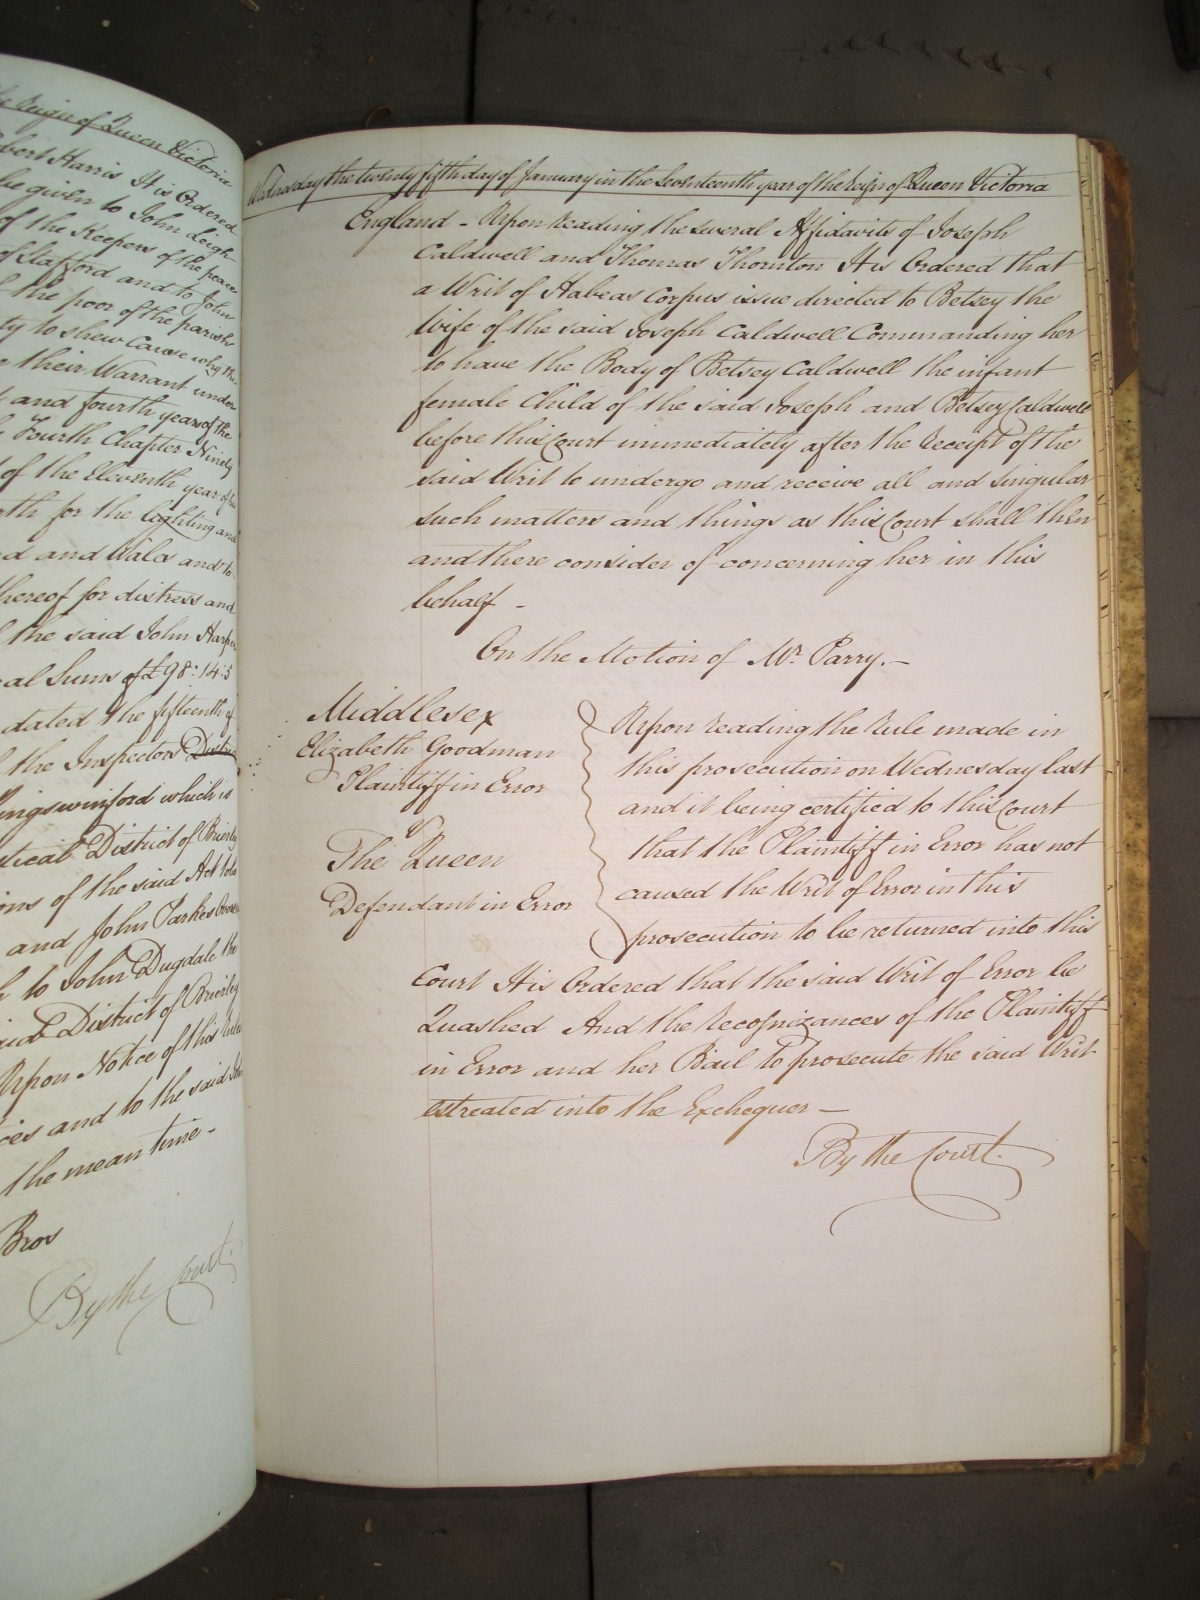 the Reign of Queen Victoria
Robert Harris It is Ordered
be given to John Leigh
of the Keepers of the peace
of Stafford and to John
the poor of the parish
to shew Cause why the
their Warrant under
and fourth years of the
Fourth Chapter Ninety
of the Eleventh year of
for the lighting and
and Wales and to
thereof for distress and
the said John Harper
Sums of £98:14:5
dated the fifteenth of
the Inspectors
Kingswinford which is
District of Brierley
of the said Act
and John Parkes
to John Dugdale the
District of Brierley
Upon Notice of this Rule
and to the said
the mean time -
Bros
By the Court
Wednesday the twenty fifth day of January in the Seventeenth year of the Reign of Queen Victoria
England - Upon reading the several Affidavits of Joseph
Caldwell and Thomas Thornton It is Ordered that
a Writ of Habeas Corpus issue directed to Betsey the
Wife of the said Joseph Caldwell Commanding her
to have the Body of Betsey Caldwell the infant
female Child of the said Joseph and Betsey Caldwell
before this Court immediately after the Receipt of the
said Writ to undergo and receive all and singular
such matters and things as this Court shall then
and there consider of concerning her in this
behalf -
On the Motion of Mr. Parry. -
Middlesex
Elizabeth Goodman
Plaintiff in Error
v
The Queen
Defendant in Error
Upon reading the Rule made in
this prosecution on Wednesday last
and it being certified to this Court
that the Plaintiff in Error has not
caused the Writ of Error in this
prosecution to be returned into this
Court It is Ordered that the said Writ of Error be
Quashed And the Recognizances of the Plaintiff
in Error and her Bail to prosecute the said Writ
estreated into the Exchequer -
By the Court.